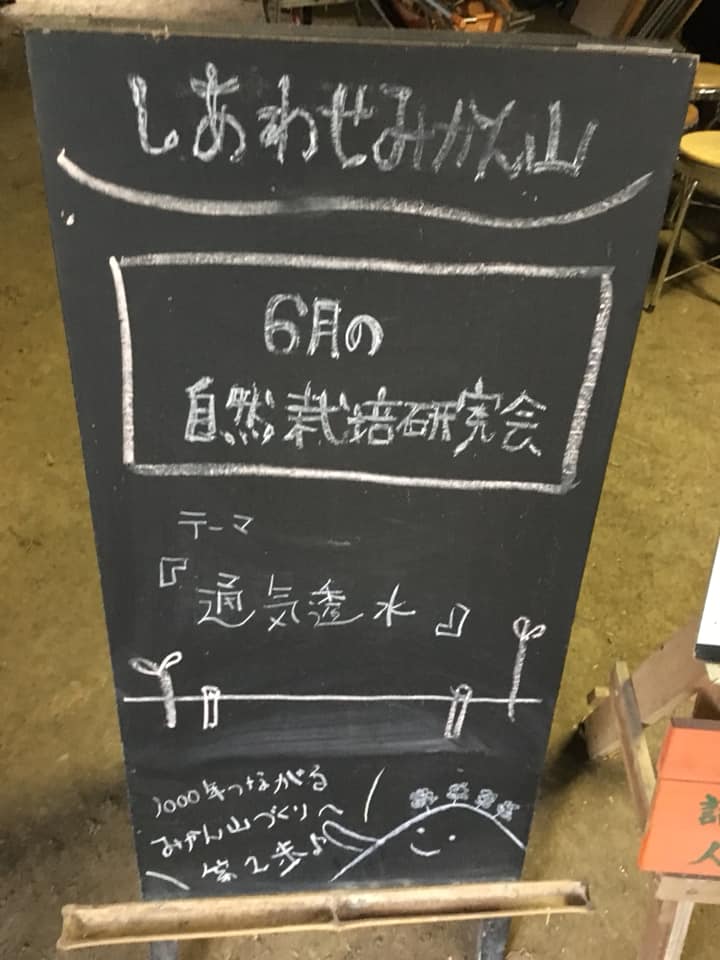 しあわせみかん山
6月の
自然栽培研究会
テーマ
『通気透水』
1000年つながる
みかん山づくりへ
第2歩♪